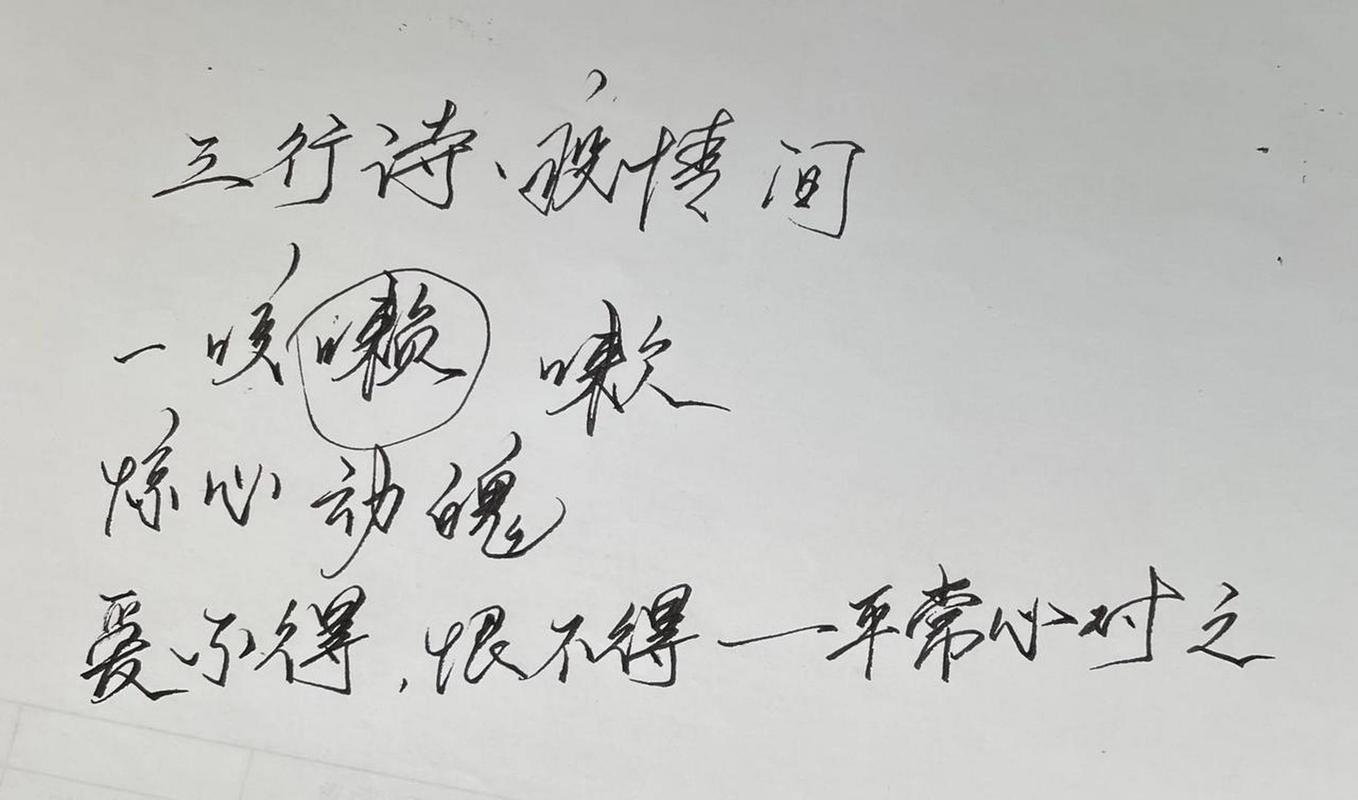 三行诗、疫情间
一咳嗽 嗽
惊心动魄
爱不得，恨不得一平常心对之